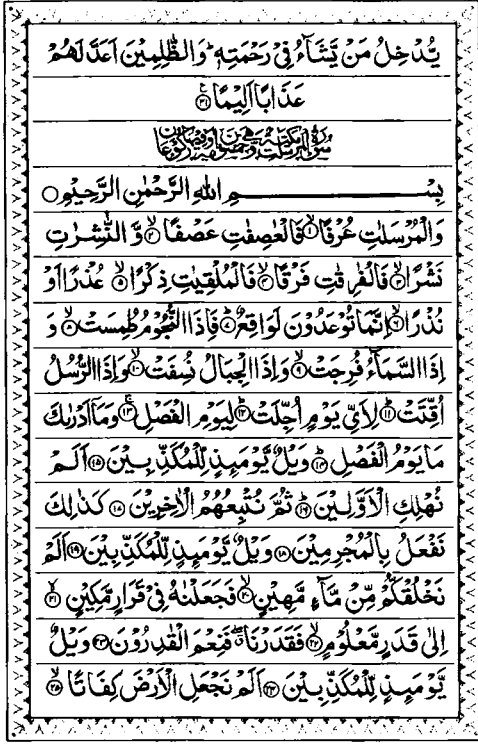 يُّدْخِلُ مَنْ يَّشَآءُ فِيْ رَحْمَتِهٖ ؕ وَالظّٰلِمِيْنَ اَعَدَّ لَهُمْ
عَذَابًا اَلِيْمًا ﴿۳۱﴾
بِسْمِ اللهِ الرَّحْمٰنِ الرَّحِيْمِ ○
وَالْمُرْسَلٰتِ عُرْفًا ۙ﴿۱﴾ فَالْعٰصِفٰتِ عَصْفًا ۙ﴿۲﴾ وَّ النّٰشِرٰتِ
نَشْرًا ۙ﴿۳﴾ فَالْفٰرِقٰتِ فَرْقًا ۙ﴿۴﴾ فَالْمُلْقِيٰتِ ذِكْرًا ۙ﴿۵﴾ عُذْرًا اَوْ
نُذْرًا ۙ﴿۶﴾ اِنَّمَا تُوْعَدُوْنَ لَوَاقِعٌ ؕ﴿۷﴾ فَاِذَا النُّجُوْمُ طُمِسَتْ ۙ﴿۸﴾ وَ
اِذَا السَّمَآءُ فُرِجَتْ ۙ﴿۹﴾ وَاِذَا الْجِبَالُ نُسِفَتْ ۙ﴿۱۰﴾ وَاِذَا الرُّسُلُ
اُقِّتَتْ ؕ﴿۱۱﴾ لِاَيِّ يَوْمٍ اُجِّلَتْ ؕ﴿۱۲﴾ لِيَوْمِ الْفَصْلِ ۚ﴿۱۳﴾ وَمَآ اَدْرٰىكَ
مَا يَوْمُ الْفَصْلِ ؕ﴿۱۴﴾ وَيْلٌ يَّوْمَئِذٍ لِّلْمُكَذِّبِيْنَ ﴿۱۵﴾ اَلَمْ
نُهْلِكِ الْاَوَّلِيْنَ ؕ﴿۱۶﴾ ثُمَّ نُتْبِعُهُمُ الْاٰخِرِيْنَ ﴿۱۷﴾ كَذٰلِكَ
نَفْعَلُ بِالْمُجْرِمِيْنَ ﴿۱۸﴾ وَيْلٌ يَّوْمَئِذٍ لِّلْمُكَذِّبِيْنَ ﴿۱۹﴾ اَلَمْ
نَخْلُقْكُّمْ مِّنْ مَّآءٍ مَّهِيْنٍ ۙ﴿۲۰﴾ فَجَعَلْنٰهُ فِيْ قَرَارٍ مَّكِيْنٍ ۙ﴿۲۱﴾
اِلٰى قَدَرٍ مَّعْلُوْمٍ ۙ﴿۲۲﴾ فَقَدَرْنَا ۖ فَنِعْمَ الْقٰدِرُوْنَ ﴿۲۳﴾ وَيْلٌ
يَّوْمَئِذٍ لِّلْمُكَذِّبِيْنَ ﴿۲۴﴾ اَلَمْ نَجْعَلِ الْاَرْضَ كِفَاتًا ۙ﴿۲۵﴾